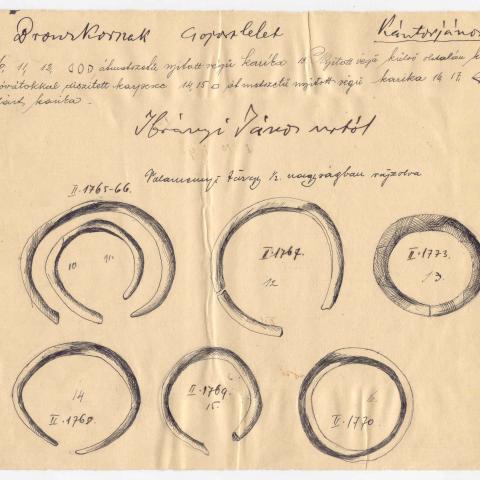 Bronzkorszak Csoportlelet Kántorjános
11, 12, átmetszetű nyitott végű karika 13. Nyitott végű külső oldalán
rovátokkal díszített karperec 14, 15 átmetszetű nyitott végű karika 16, 17.
zárt karika.
Ibrányi János úrtól
Valamennyi tárgy 1/2 nagyságban rajzolva
II. 1765-66.
10 11.
II. 1767.
12
II. 1773.
13.
14
II. 1768.
II. 1769.
15.
16
II. 1770